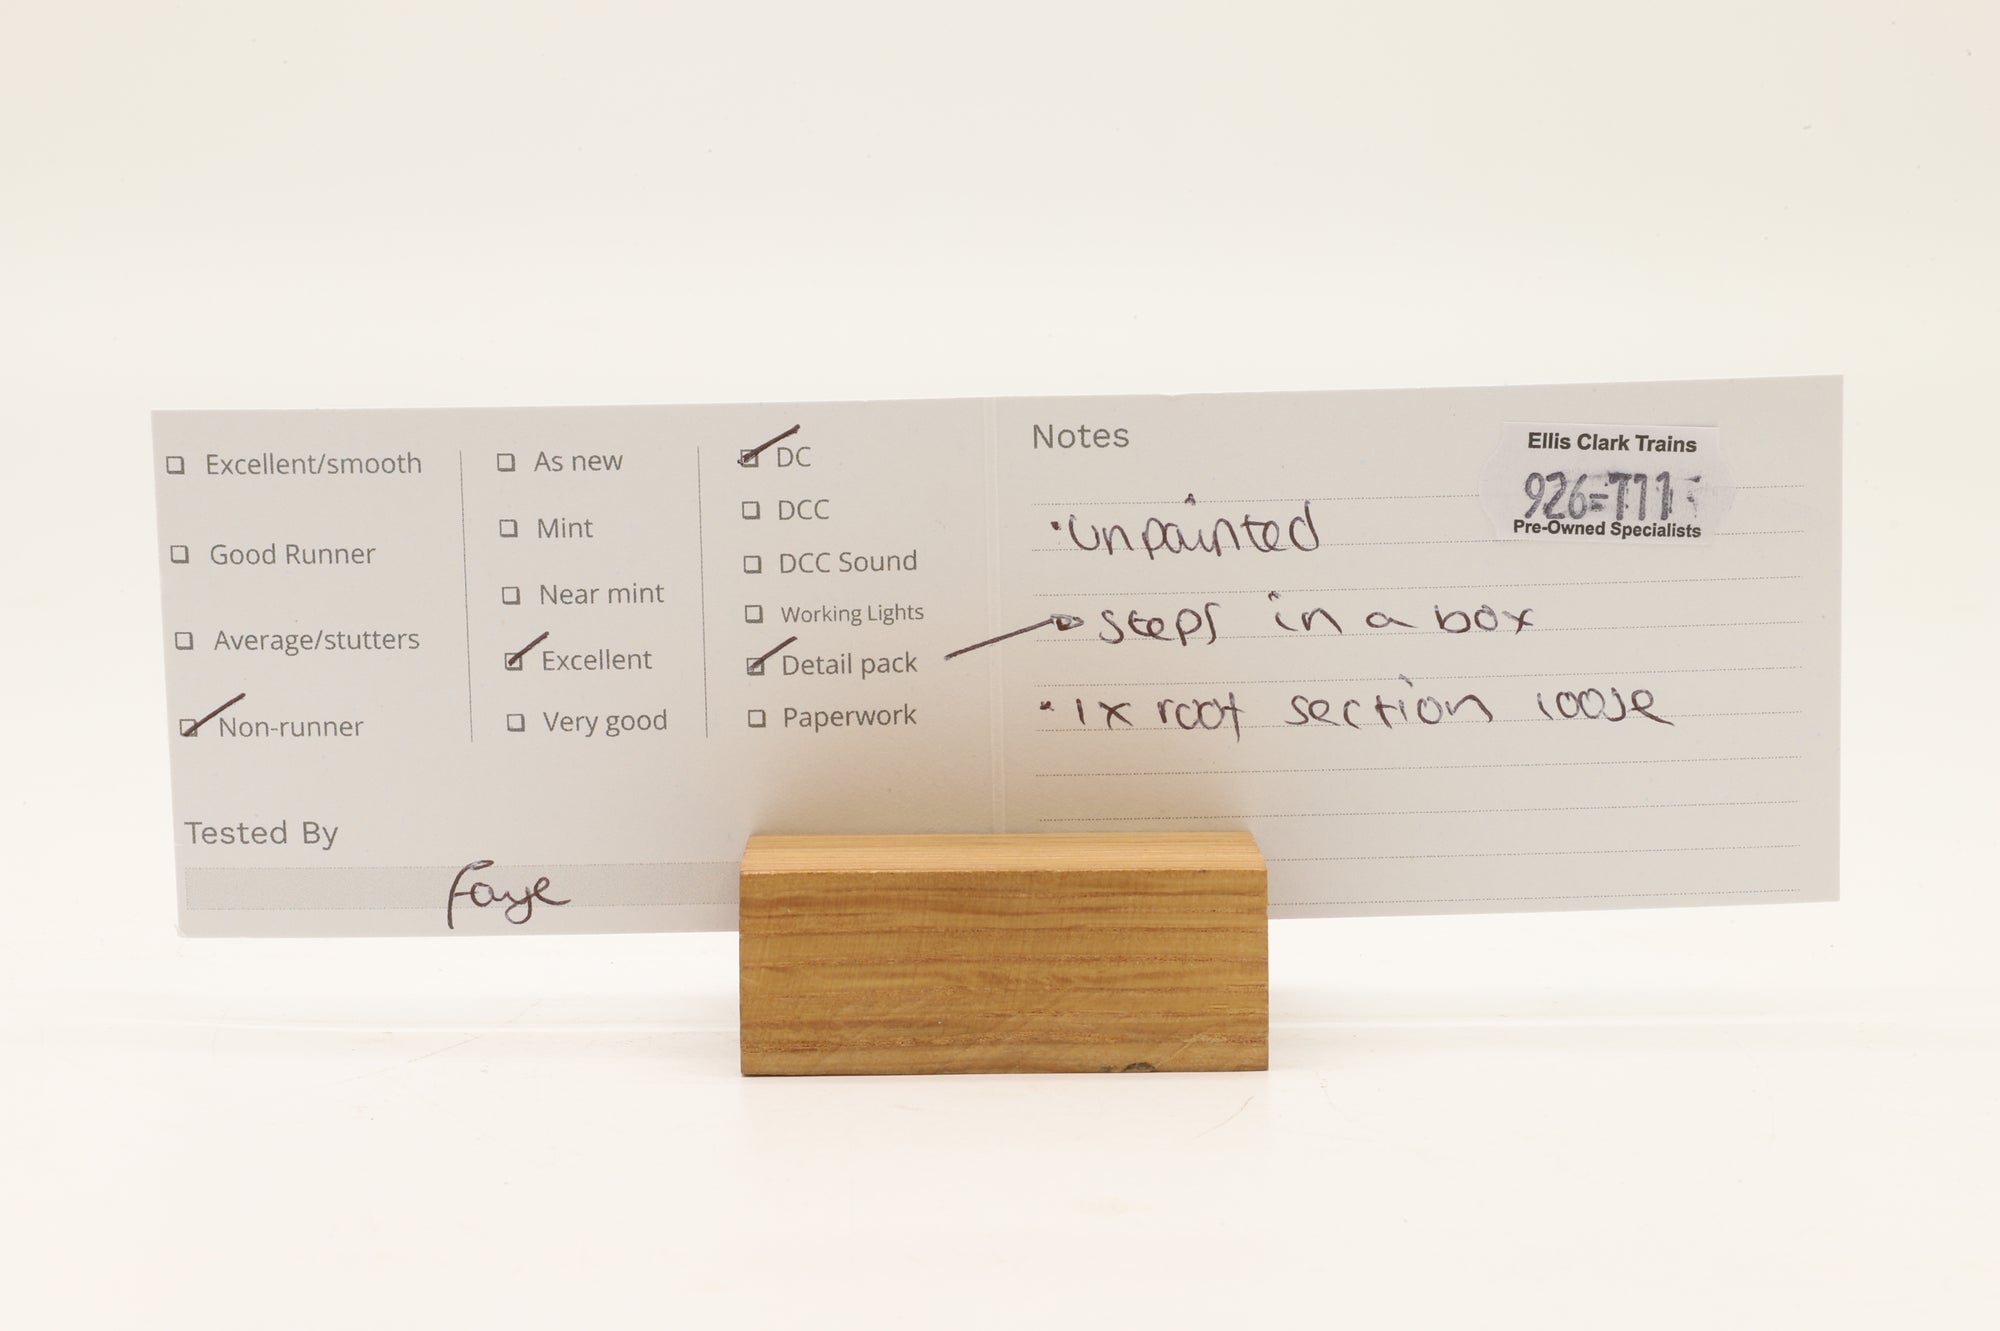 ☐ Excellent/smooth
☐ Good Runner
☐ Average/stutters
☑ Non-runner
☐ As new
☐ Mint
☐ Near mint
☑ Excellent
☐ Very good
☑ DC
☐ DCC
☐ DCC Sound
☐ Working Lights
☑ Detail pack
☐ Paperwork
Tested By
Faye
Notes
Ellis Clark Trains
926=T11
Pre-Owned Specialists
• Unpainted
→ steps in a box
• 1x roof section loose